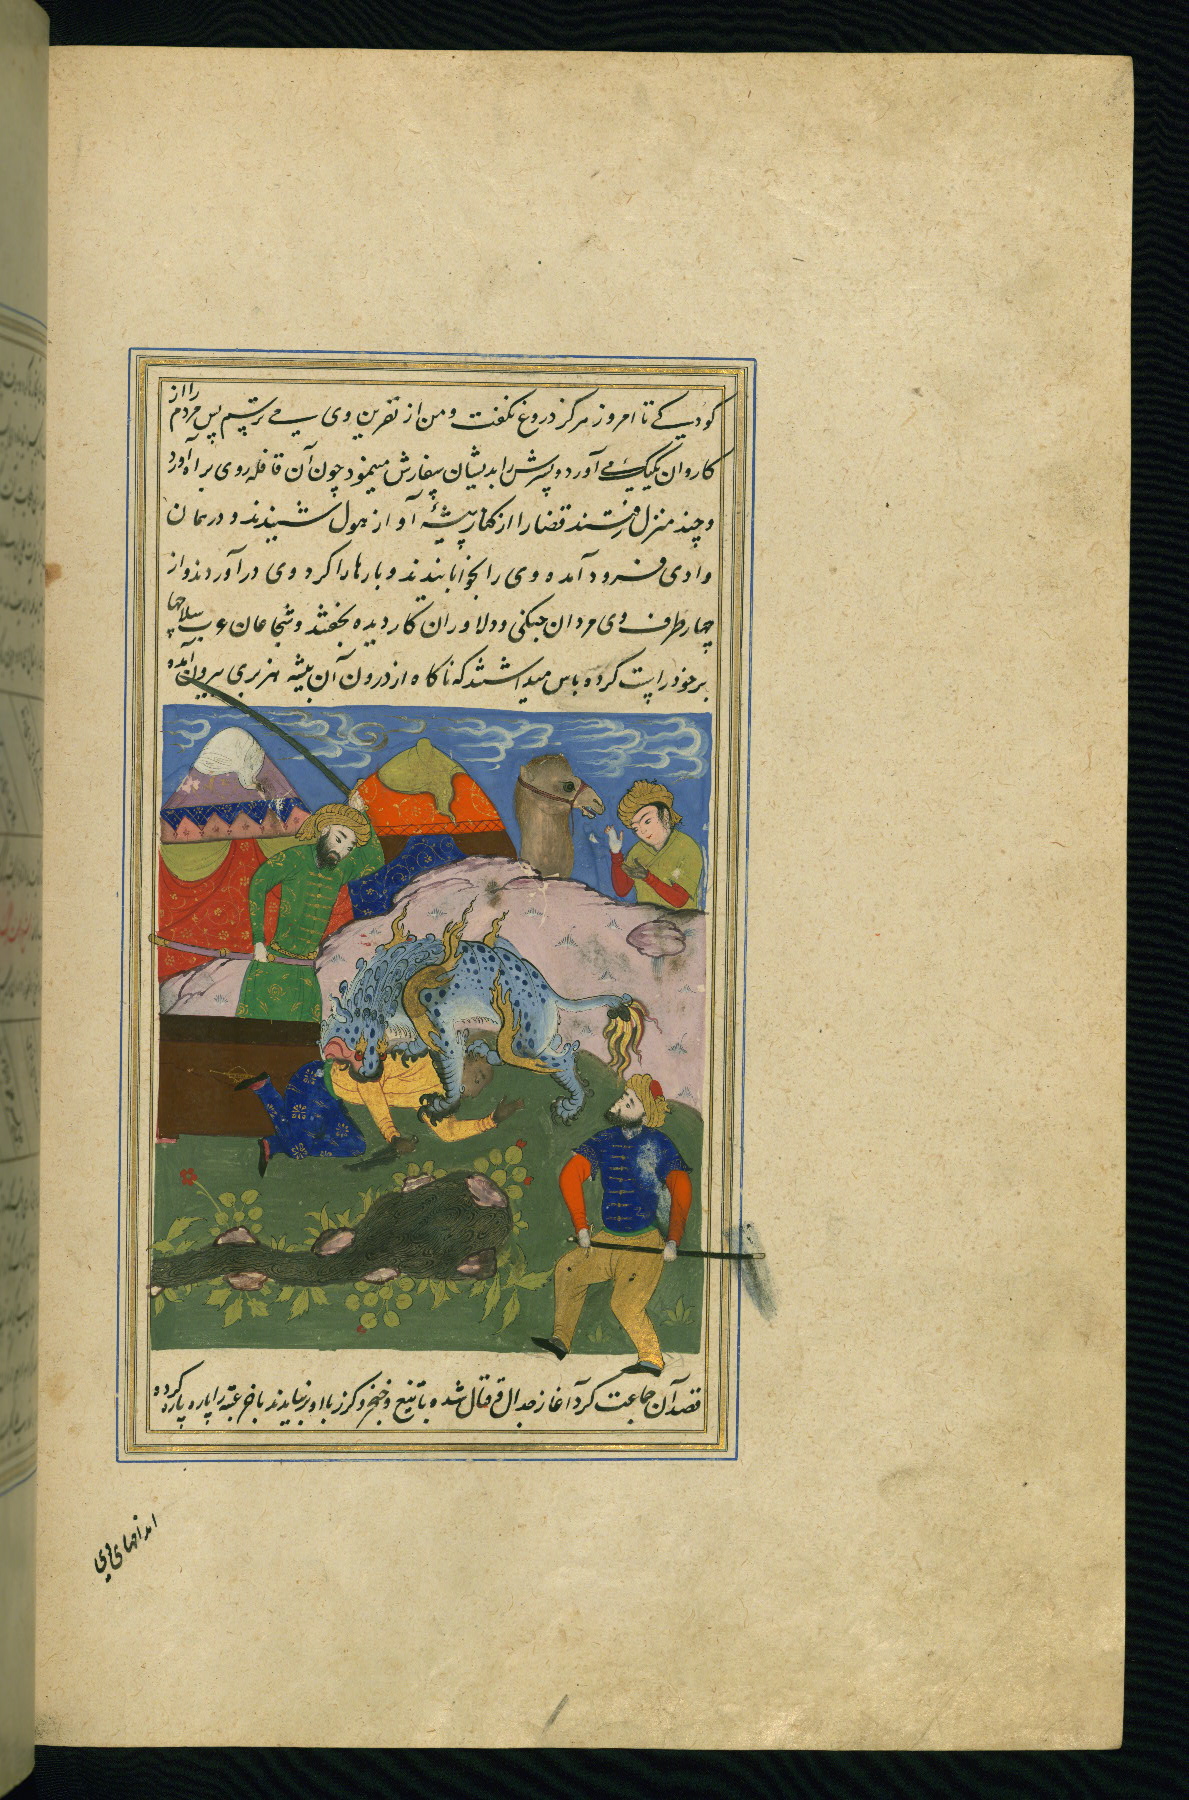 کودیکے تا امروز هرکز دروغ نکفت و من از نفرین وی می ترسیم پس مردم را از
کاروان یکیک مے آورد و پسرش را بدیشان سپفارش مینمود چون آن قافله روی براه آورد
و چند منزل رفتند قضا را از کنار بیشۀ آواز هول شنیدند و در همان
وادی فرود آمده وی را بخوابانیدند و بارها را کرد وی در آوردند و از
چهار طرف وی مردان جنکی و دلاوران کاردیده بخفتند و شجاعان عرب سلاحها
بر خود راست کرده پاس میداشتند که ناکاه از درون آن بیشه هزبری بیرون آمده
قصد آن جماعت کرد آغاز جدال و قتال شده با تیغ و خنجر و کرز با او بر نیایدند بآخر عتبه را پاره پاره کرده
اندامهای وی